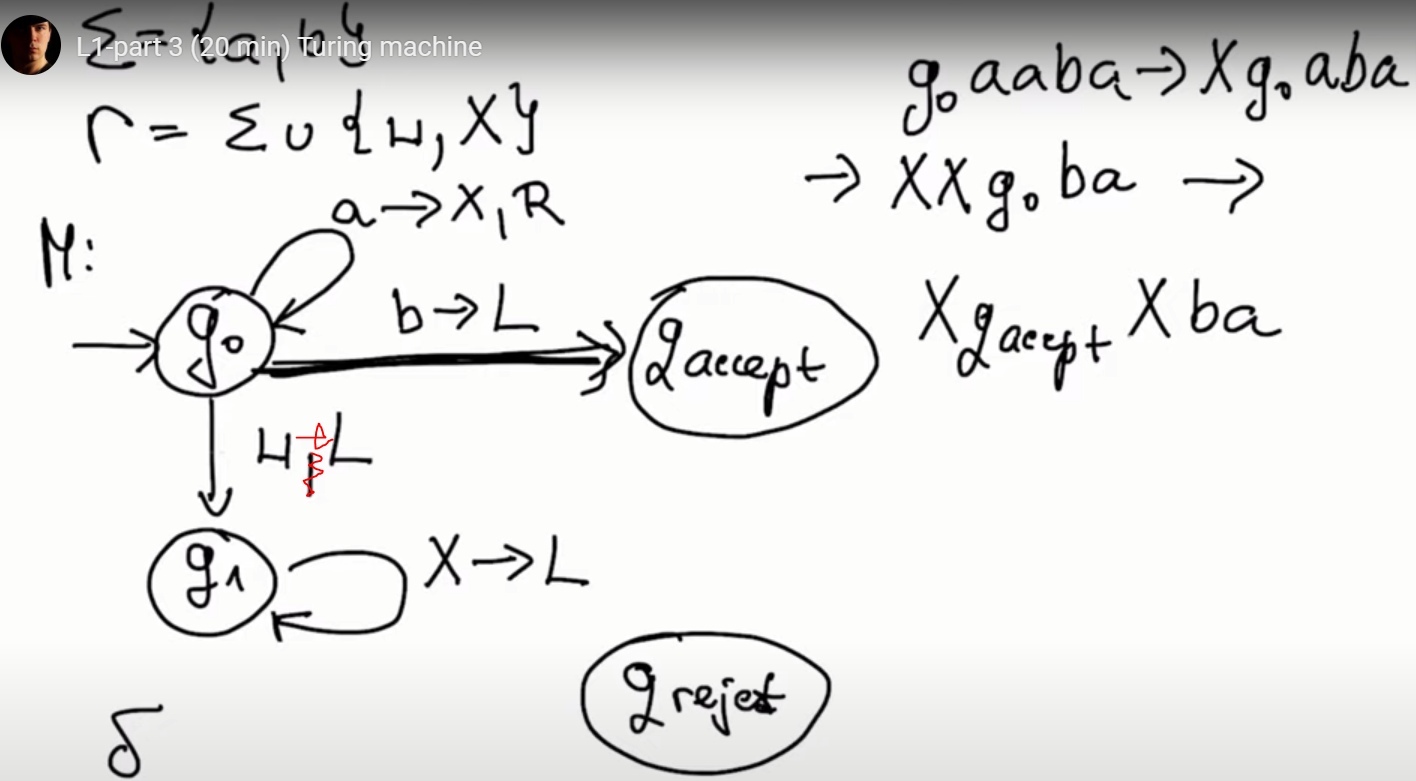 Σ = {a, b}
L1-part 3 (20 min) Turing machine
Γ = Σ ∪ {⊔, X}
M:
a → X, R
q₀
b → L
q accept
⊔ → L
q₁
X → L
q reject
δ
q₀ aaba → X q₀ aba
→ XX q₀ ba →
X q accept X ba